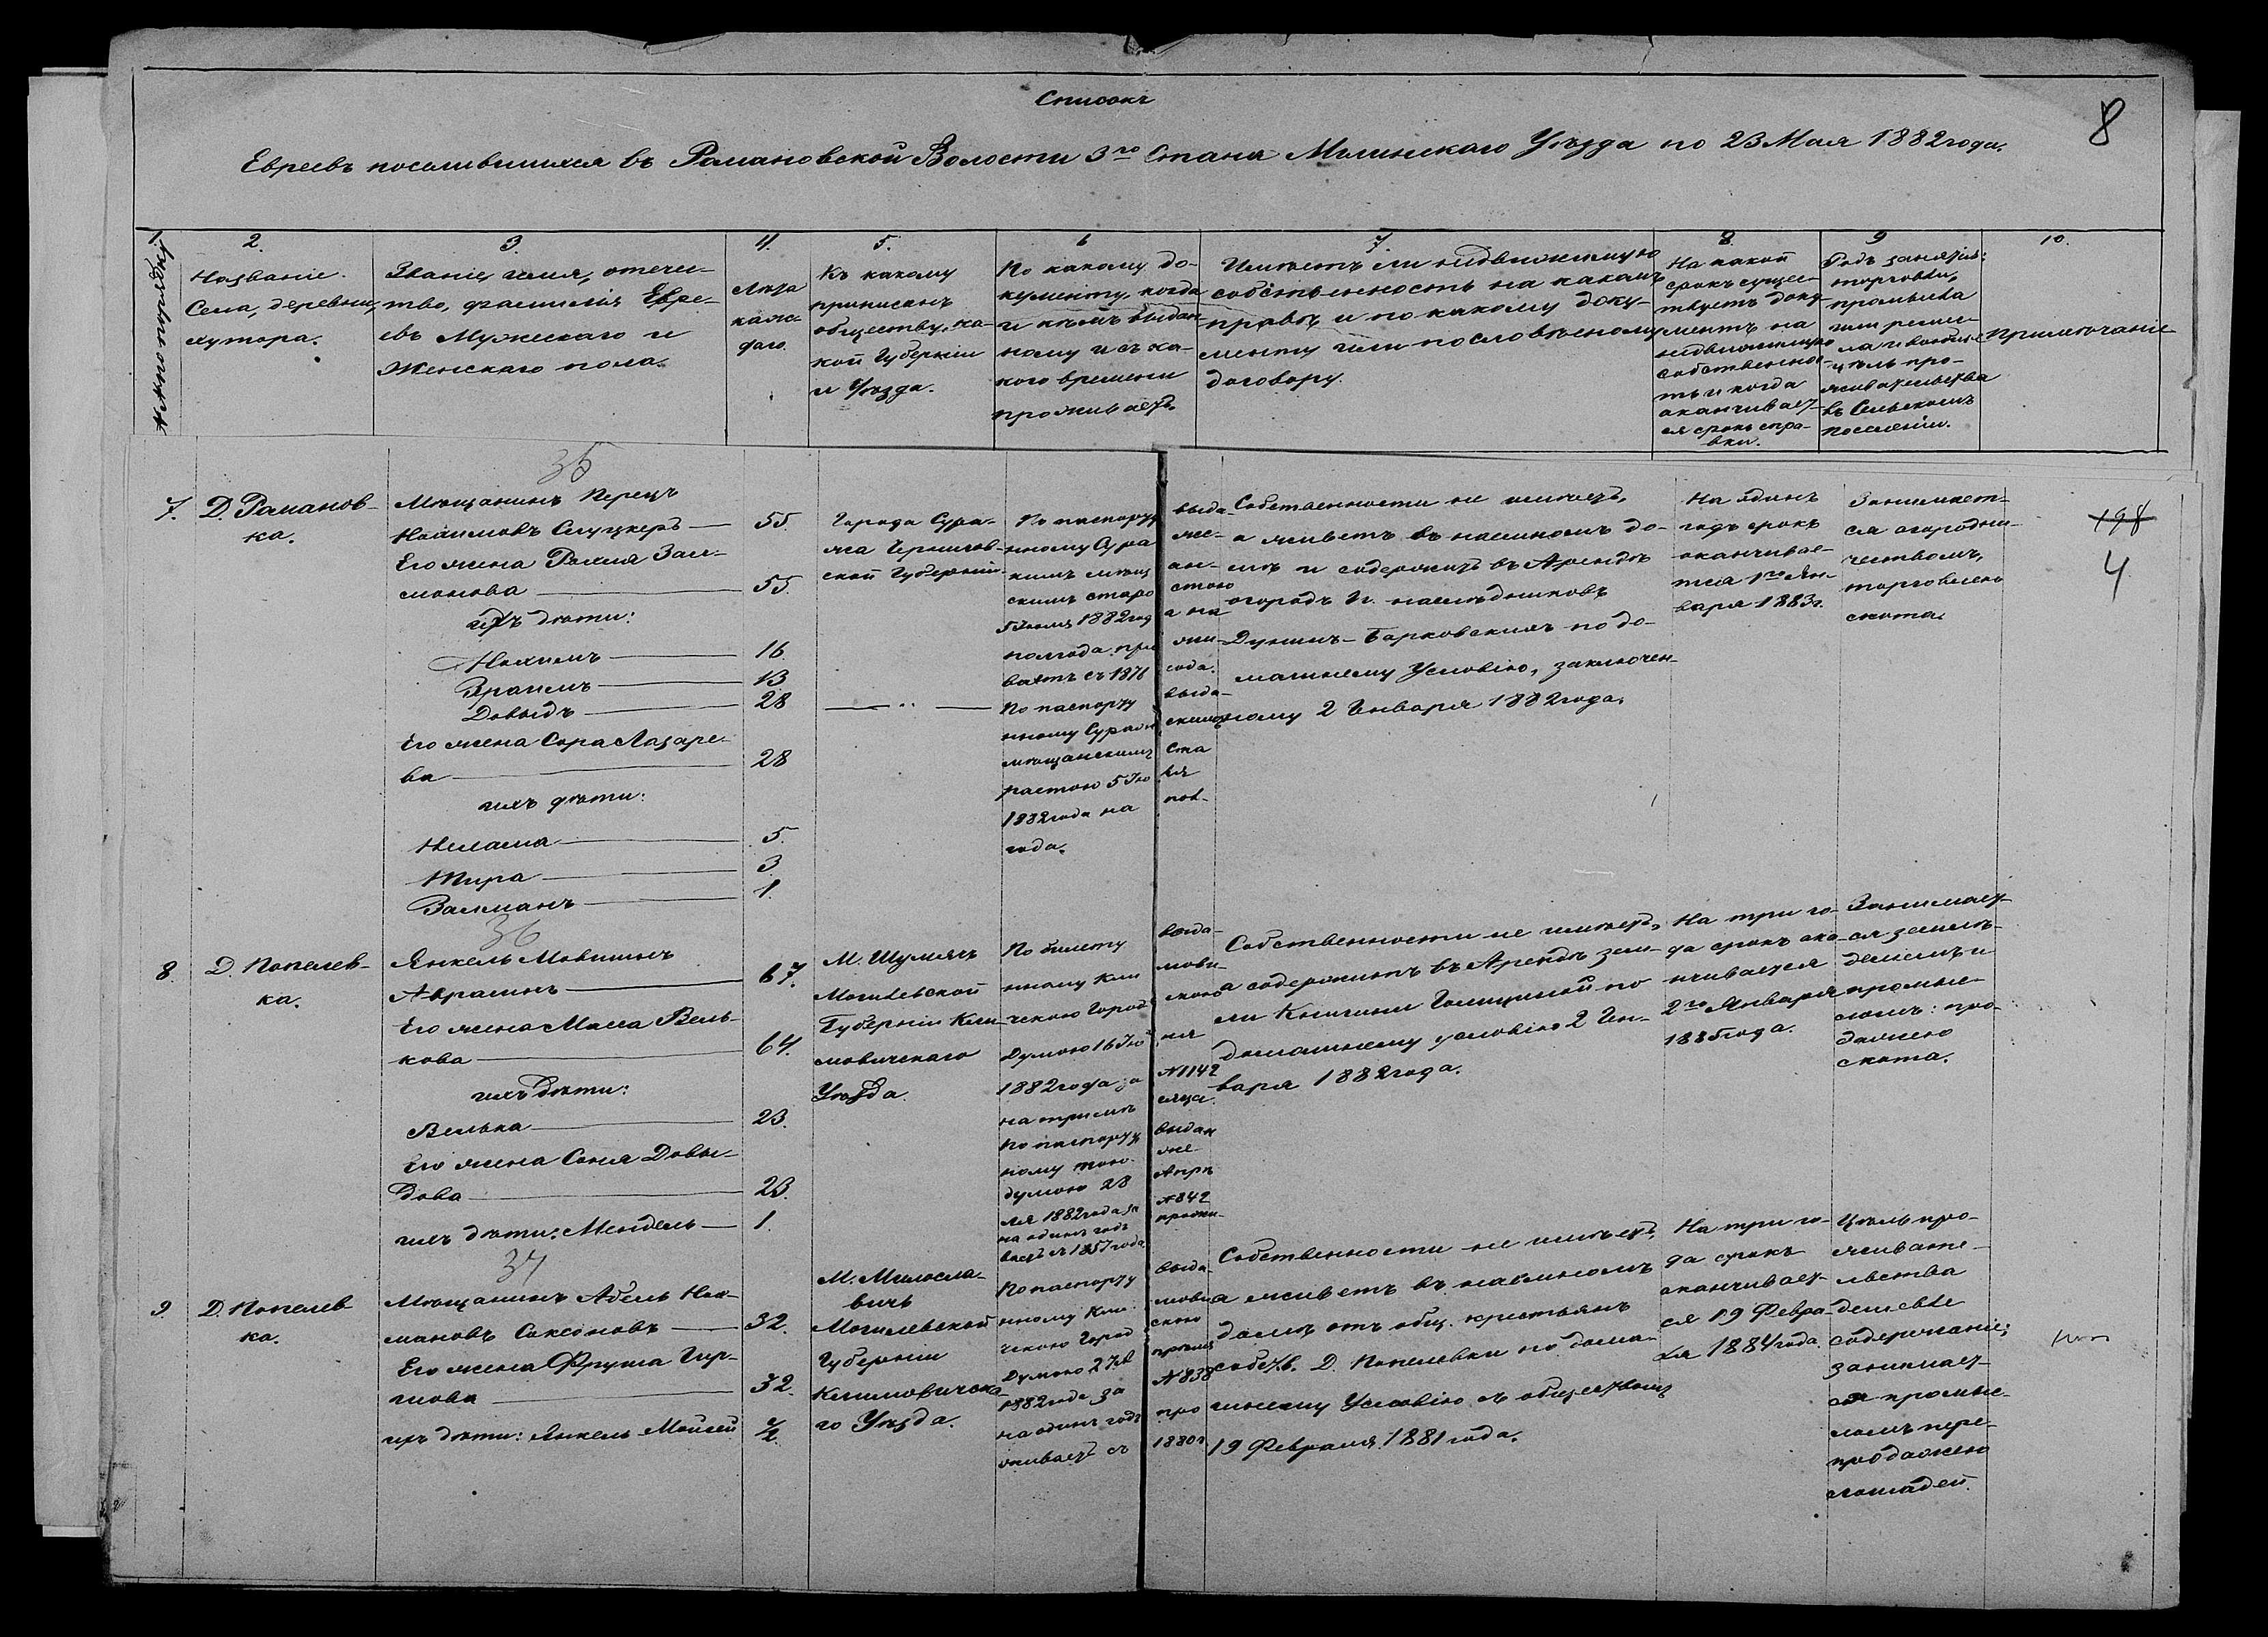 Списокъ
8
Евреевъ поселившихся въ Романовской Волости 3го Стана Мглинскаго Уѣзда по 23 Мая 1882 года.
1
№№ по порядку
2.
Названіе
Села, деревни,
хутора.
3.
Званіе, имя, отече-
тво, фамилія Евре-
евъ Мужескаго и
Женскаго пола.
4.
Лѣта
каж-
даго
5.
Къ какому
приписанъ
обществу, ка-
кой Губерніи
и Уѣзда.
6
По какому до-
кументу, когда
и кѣмъ выдан-
ному и съ ка-
кого времени
проживаетъ.
7.
Имѣетъ ли недвижимую
собственность на какомъ
правѣ и по какому доку-
менту или по словѣсному
договору.
8.
На какой
срокъ сущес-
твуетъ доку-
ментъ на
недвижимую
собственнос-
ть и когда
оканчивает-
ся срокъ
9
Родъ занятія:
торговли,
промысла
или ремес-
ла и вообще
цѣль про-
живательства
въ Сельскомъ
поселеніи.
10.
Примѣчаніе
35
7.
Д. Романов-
ка.
Мѣщанинъ Перецъ
Нохимовъ Слуцкеръ — 55.
Его жена Рохля Зал-
монова — 55.
ихъ дѣти:
Нохимъ — 16
Фраимъ — 13
Довыдъ — 28
Его жена Сора Лазаре-
ва — 28
ихъ дѣти:
— 5.
— 3
Залманъ — 1.
Города Сура-
жа Чернигов-
ской Губерніи.
— " —
По паспорту выда-
нному Сура же-
кимъ мѣщ ан-
скимъ старо стою
5 Іюня 1882 год а на
полгода, про жи-
ваетъ съ 1876 года.
По паспорту выда-
нному Сураж скимъ
мѣщанскимъ ста
ростою 5 Ію ня
1882 года на пол-
года.
Собственности не имѣетъ,
а живетъ въ наемномъ до-
мѣ и содержитъ въ Арендѣ
огородъ Г. наслѣдниковъ
Дунинъ-Барковскихъ по до-
машнему Условію, заключен-
ному 2 Января 1882 года.
На одинъ
годъ срокъ
оканчивае-
тся 1го Ян-
варя 1883 г.
Занимает-
ся огородни-
чествомъ,
торговлею
скота.
198
4
36
8.
Д. Попелев-
ка.
Янкель Мовшинъ
Авраминъ — 67.
Его жена Маша Вель-
кова — 64.
ихъ дѣти:
Велька — 23.
Его жена Соня Довы-
дова — 23.
ихъ дѣти: Мендель — 1.
М. Шумячъ
Могилевской
Губерніи Кли-
мовичскаго
Уѣзда.
По билету выда-
нному Кли мови-
ческою Город скою
Думою 16 Ію ня
1882 года за №1142
на три мѣ сяца.
По паспорту выдан
ному тою же
думою 28 Апрѣ
ля 1882 года за №842
на одинъ годъ прожи-
ваетъ съ 1857 года
Собственности не имѣетъ,
а содержитъ въ Арендѣ зем-
ли Княгини Голицыной по
домашнему условію 2 Ян-
варя 1882 года.
На три го-
да срокъ ока-
нчивается
2го Января
1885 года.
Занимает-
ся землѣ-
деліемъ и
промыс-
ломъ: про-
дажею
скота.
37
9.
Д. Попелев
ка.
Мѣщанинъ Абель Нох-
мановъ Саксоновъ — 32.
Его жена Фрума Гир-
шова — 32.
ихъ дѣти: Янкель-Мойсей ½
М. Милосла-
вичь
Могилевской
Губерніи
Климовичска-
го Уѣзда.
По паспорту выда-
нному Кли мови
ческою Город скою
Думою 27
1882 года за №838
на одинъ годъ про
живаетъ съ 1880 г
Собственности не имѣетъ,
а живетъ въ наемномъ
домѣ отъ общ. крестьянъ
собств. Д. Попелевки по дома-
шнему Условію съ обществомъ
19 Февраля 1881 года.
На три го-
да срокъ
оканчивает-
ся 19 Февра-
ля 1884 года.
Цѣль про-
живате-
льства
дешевле
содержаніе;
занимает-
ся промыс-
ломъ пере-
продажею
лошадей.